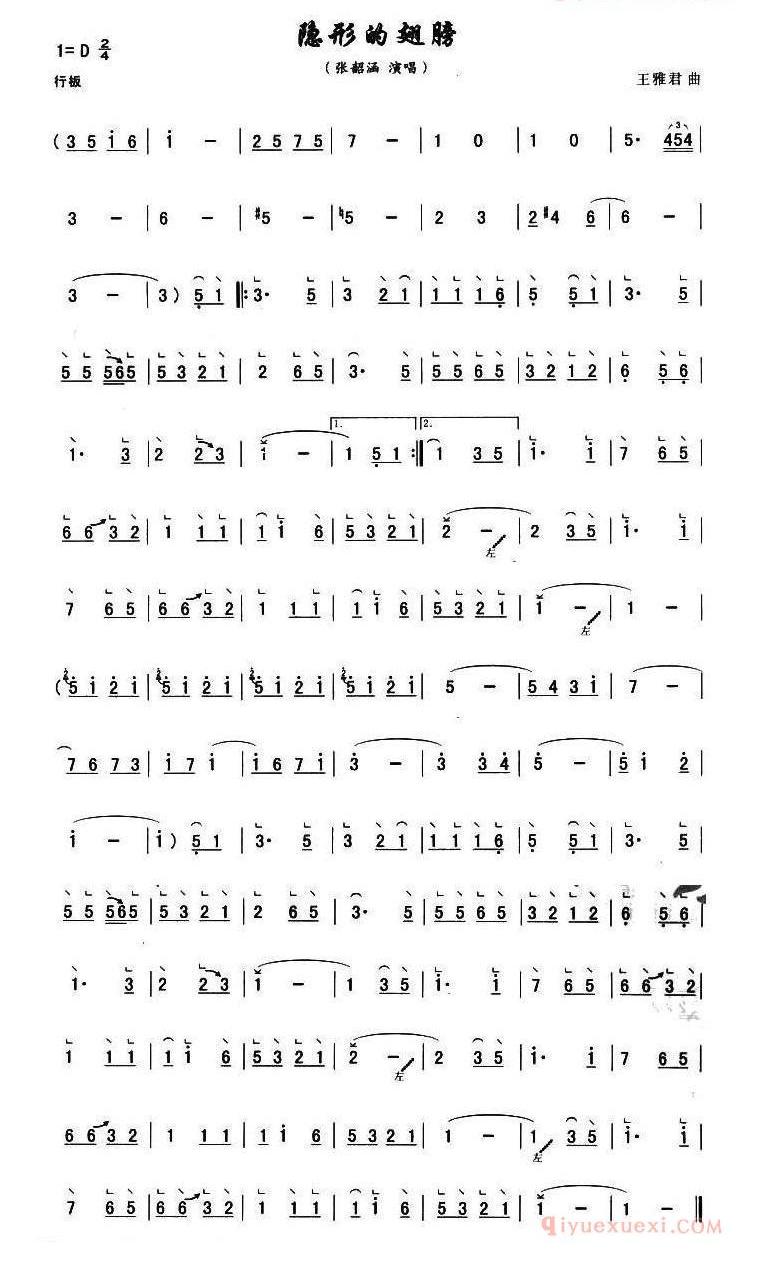 隐形的翅膀
1=D 2/4
(张韶涵 演唱)
行板
王雅君 曲
(3 5 i 6 | i - | 2 5 7 5 | 7 - | 1 0 | 1 0 | 5· 3 454 |
3 - | 6 - | #5 - | ♮5 - | 2 3 | 2 #4 6 | 6 - |
3 - | 3) 5 1 |: 3· 5 | 3 2 1 | 1 1 1 6 | 5 5 1 | 3· 5 |
5 5 565 | 5 3 2 1 | 2 6 5 | 3· 5 | 5 5 6 5 | 3 2 1 2 | 6 5 6 |
1· 3 | 2 2 3 | i - | 1. 1 5 1 :| 2. 1 3 5 | i· i | 7 6 5 |
6 6 3 2 | 1 1 1 | 1 i 6 | 5 3 2 1 | 2 - 左 | 2 3 5 | i· i |
7 6 5 | 6 6 3 2 | 1 1 1 | 1 i 6 | 5 3 2 1 | 1 - 左 | 1 - |
(5 i 2 i | 5 i 2 i | 5 i 2 i | 5 i 2 i | 5 - | 5 4 3 i | 7 - |
7 6 7 3 | i 7 i | i 6 7 i | 3 - | 3 3 4 | 5 - | 5 i 2 |
i - | i) 5 1 | 3· 5 | 3 2 1 | 1 1 1 6 | 5 5 1 | 3· 5 |
5 5 565 | 5 3 2 1 | 2 6 5 | 3· 5 | 5 5 6 5 | 3 2 1 2 | 6 5 6 |
1· 3 | 2 2 3 | 1 - | 1 3 5 | i· i | 7 6 5 | 6 6 3 2 |
1 1 1 | 1 i 6 | 5 3 2 1 | 2 - 左 | 2 3 5 | i· i | 7 6 5 |
6 6 3 2 | 1 1 1 | 1 i 6 | 5 3 2 1 | 1 - | 1 左 3 5 | i· i |
7 6 5 | 6 6 3 2 | 1 1 1 | 1 i 6 | 5 3 2 1 | 1 - | 1 - ‖
qiyuexuexi.COM